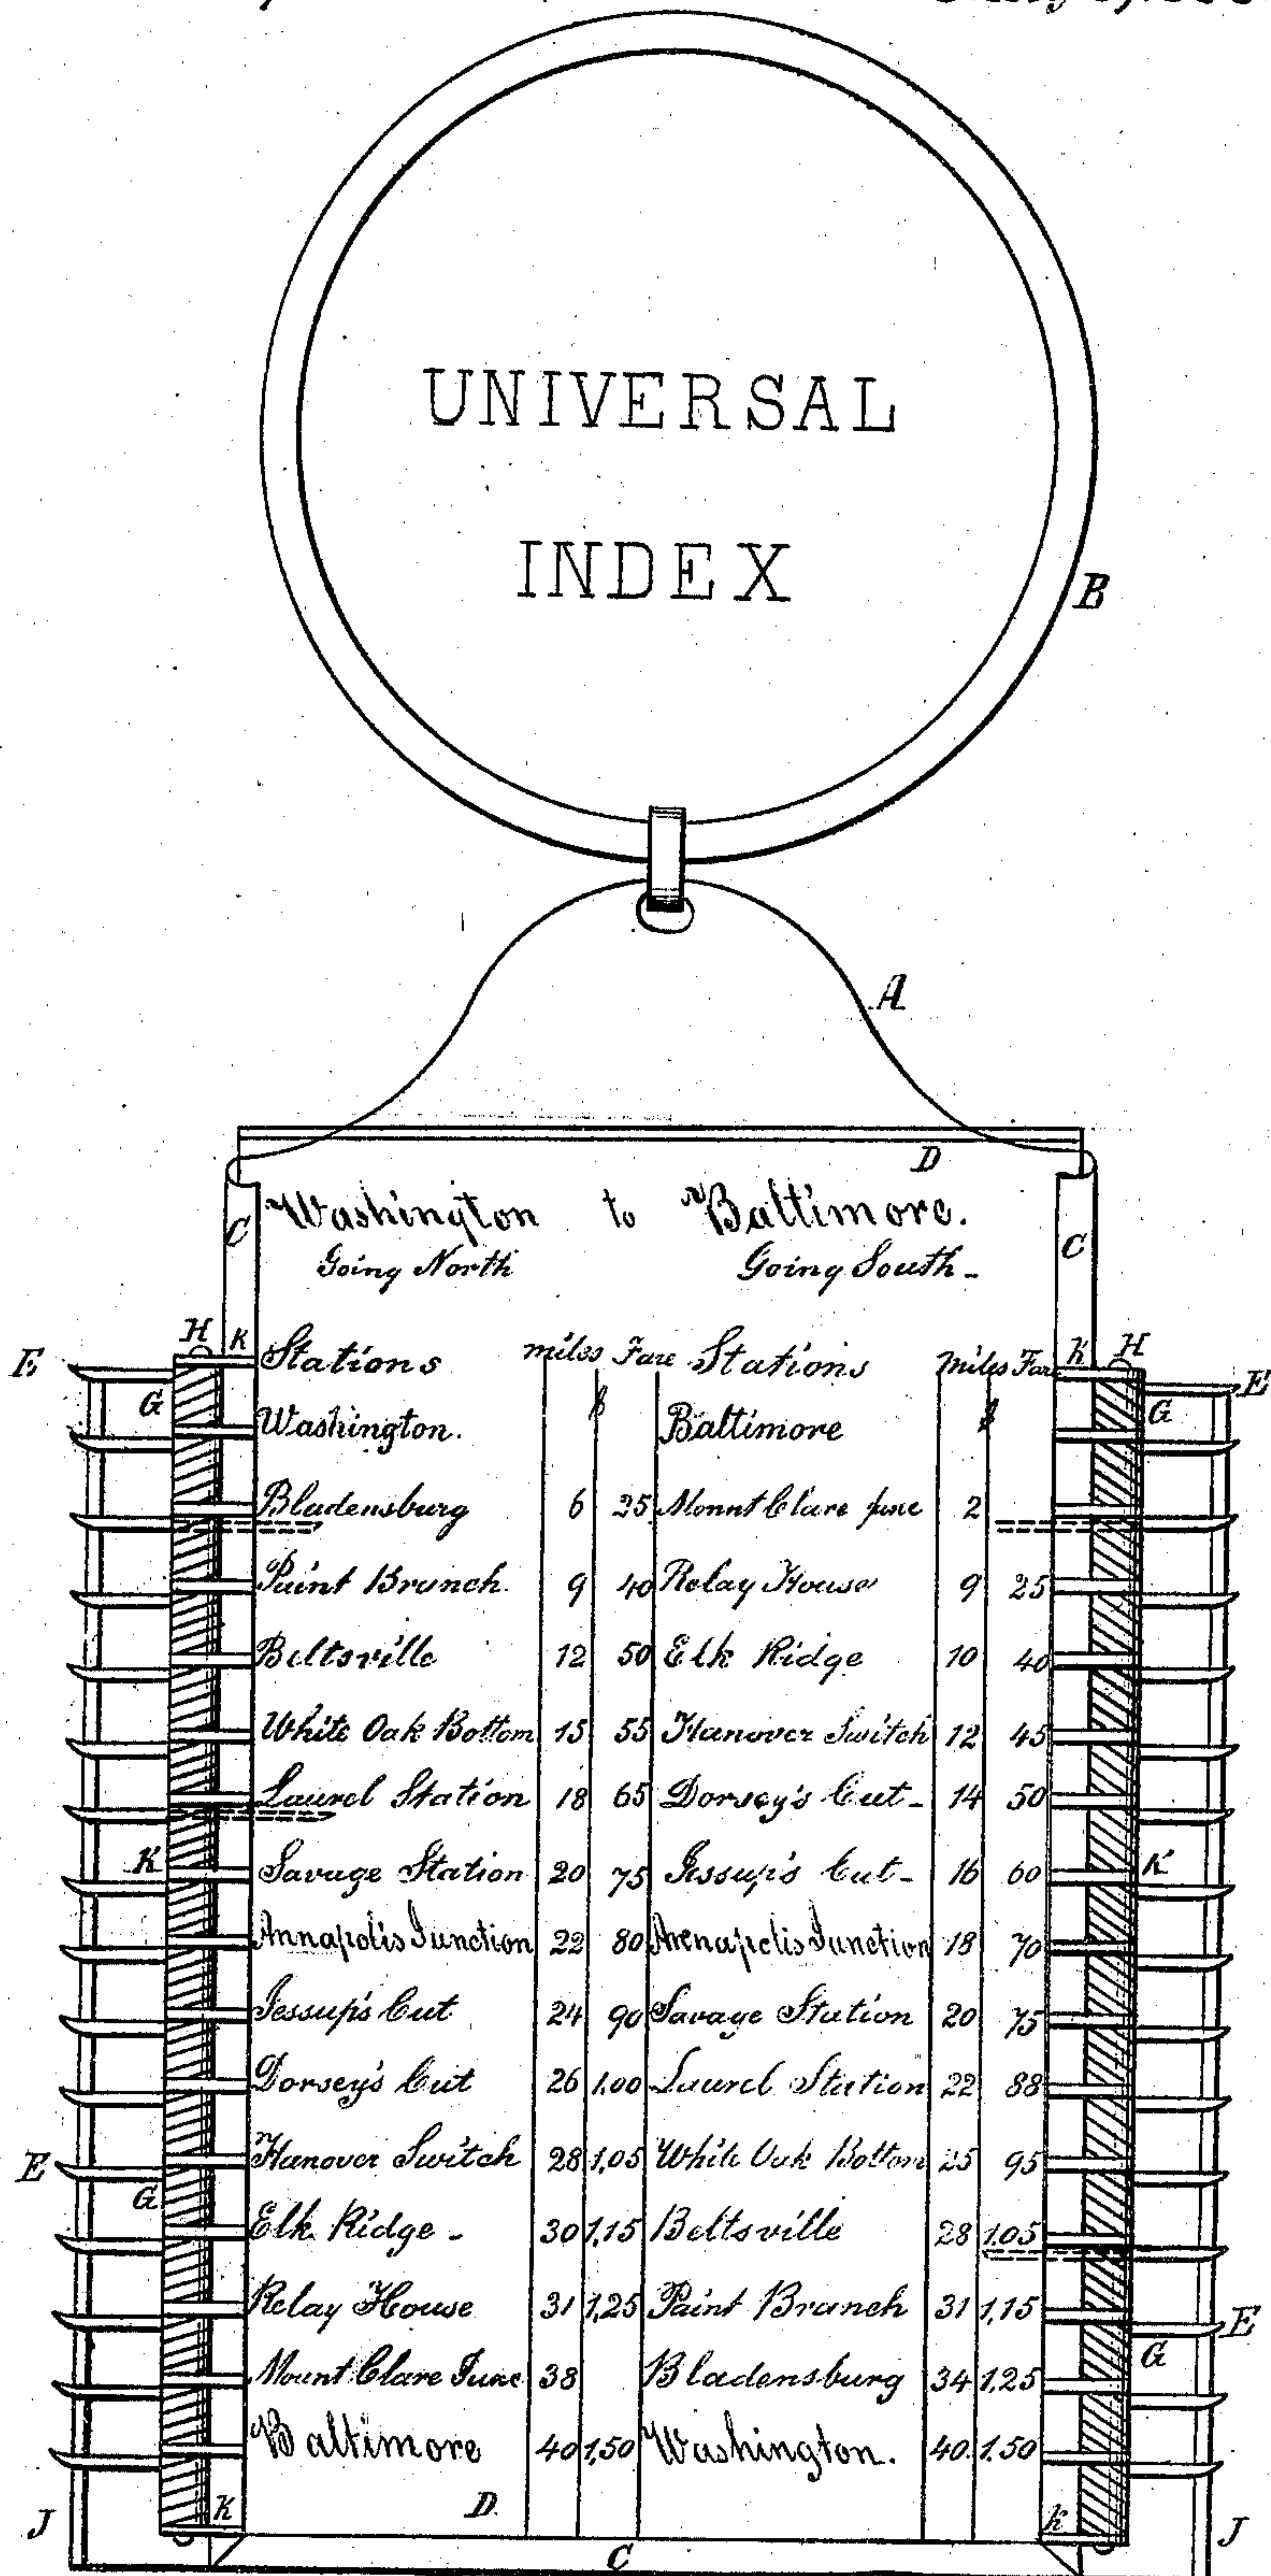 UNIVERSAL
INDEX
B
A
D
Washington to Baltimore.
C Going North Going South - C
H K K H
E Stations miles Fare Stations Miles Fare E
G $ $ G
Washington. Baltimore
Bladensburg 6 25 Mount Clare June 2
Paint Branch. 9 40 Relay House 9 25
Beltsville 12 50 Elk Ridge 10 40
White Oak Bottom 15 55 Hanover Switch 12 45
Laurel Station 18 65 Dorsey's Cut - 14 50
K Savage Station 20 75 Jessup's Cut - 16 60 K
Annapolis Junction 22 80 Annapolis Junction 18 70
Jessup's Cut 24 90 Savage Station 20 75
Dorsey's Cut 26 1.00 Laurel Station 22 88
E Hanover Switch 28 1,05 White Oak Bottom 25 95
G
Elk Ridge - 30 1,15 Beltsville 28 1.05
Relay House 31 1,25 Paint Branch 31 1,15 E
Mount Clare June 38 Bladensburg 34 1,25 G
Baltimore 40 1,50 Washington. 40. 1.50
J K D. K J
C